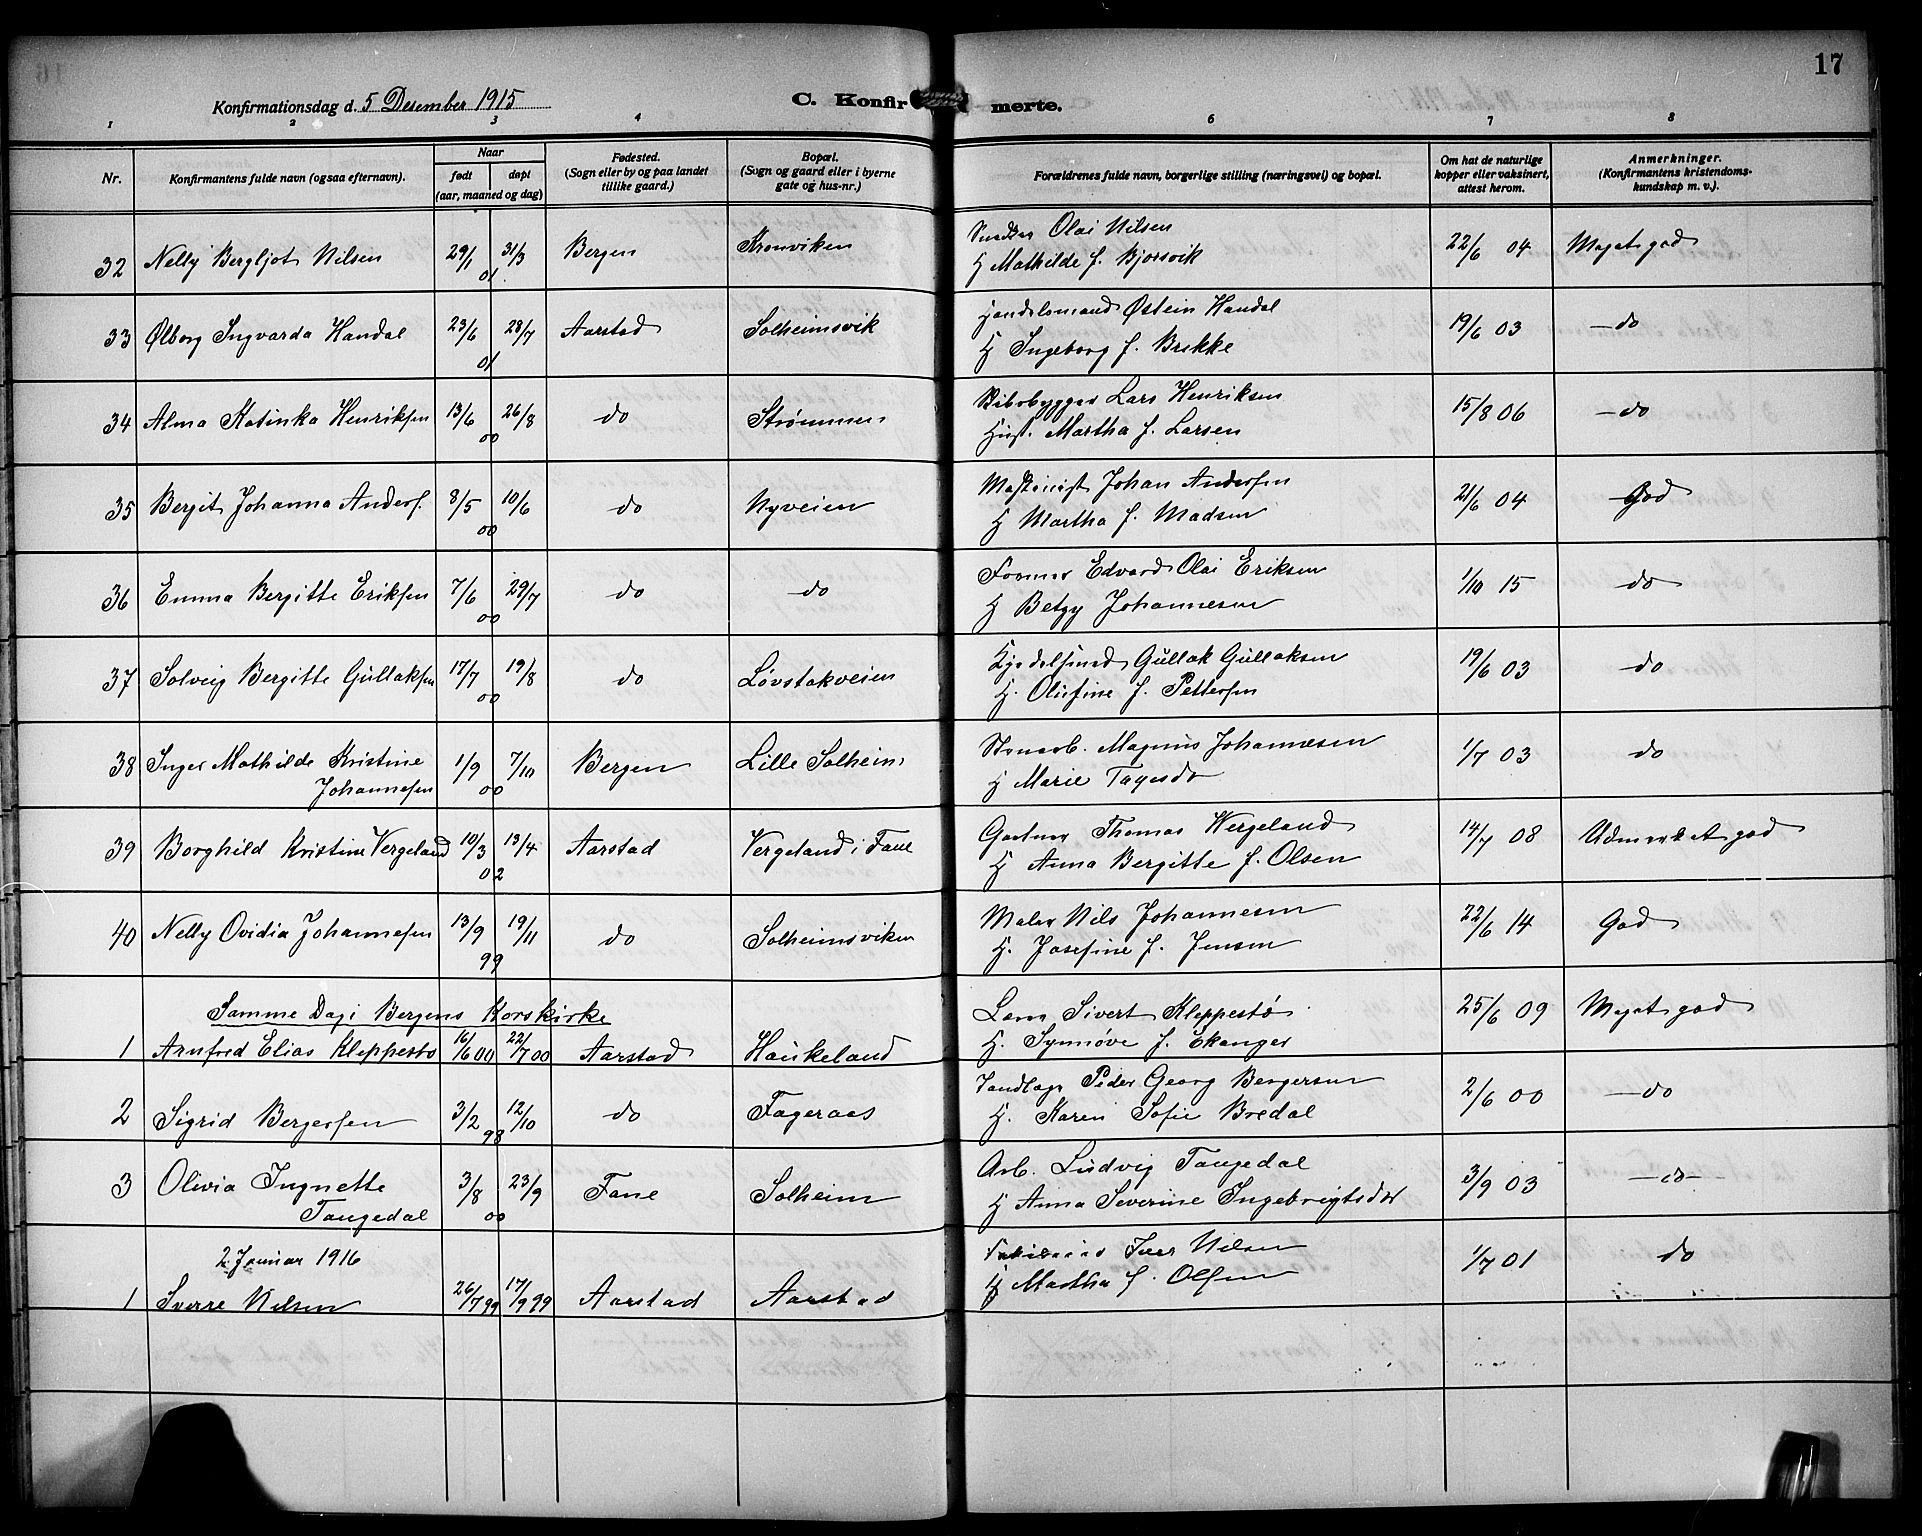 17
Konfirmationsdag d. 5 Desember 1915
C. Konfirmerte.
1 2 3 4 6 7 8
Nr.
Konfirmantens fulde navn (ogsaa efternavn).
Naar
født døpt
(aar, maaned og dag)
Fødested.
(Sogn eller by og paa landet
tillike gaard.)
Bopæl.
(Sogn og gaard eller i byerne
gate og hus-nr.)
Forældrenes fulde navn, borgerlige stilling (næringsvei) og bopæl.
Om hat de naturlige
kopper eller vaksinert,
attest herom.
Anmerkninger.
(Konfirmantens kristendoms-
kundskap m. v.).
32 Nelly Bergljot Nilsen 29/1 31/3 01 Bergen Kronviken
Olai Nilsen
H Mathilde f. Bjorsvik
22/6 04 Meget god
33 Ølborg Ingvarda Handal 23/6 28/7 01 Aarstad Solheimsvik
Handelsmand Østein Handal
H Ingeborg f. Brekke
19/6 03 — do
34 Alma Katinka Henriksen 13/6 26/8 00 do Strømmen
Skibsbygger Lars Henriksen
Hust. Martha f. Larsen
15/8 06 — do
35 Bergit Johanna Anders. 8/5 10/6 00 do Nyveien
Maskinist Johan Andersen
H Martha f. Madsen
21/6 04 God
36 Emma Bergitte Eriksen 7/6 29/7 00 do do
Former Edvard Olai Eriksen
H Betzy Johannesen
1/10 15 do
37 Solveig Bergitte Gullaksen 17/7 19/8 00 do Løvstakveien
Gullak Gullaksen
H. Olufine f. Pettersen
19/6 03 do
38 Inger Mathilde Kristine
Johannesen 1/9 7/10 00 Bergen Lille Solheim
Stenarb. Magnus Johannesen
H Marie
1/7 03 do
39 Borghild Kristine Vergeland 10/3 13/4 02 Aarstad Vergeland i Fane
Gartner Thomas Wergeland
H Anna Bergitte f. Olsen
14/7 08 Udmerket god
40 Nelly Ovidia Johannesen 13/9 19/11 99 do Solheimsviken
Maler Nils Johannesen
H. Josefine f. Jensen
22/6 14 God
Samme Dag i Bergens Korskirke
1 Arnfred Elias Kleppestø 16/6 00 22/7 00 Aarstad Haukeland
Sivert Kleppestø
H. Synnøve f. Ekanger
25/6 09 Meget god
2 Sigrid Bergersen 3/2 12/10 98 do Fageraas
Peder Georg Bergersen
H. Karen Sofie Bredal
2/6 00 — do
3 Olivia Ingnette
Tangedal 3/8 23/9 00 Fane Solheim
Arb. Ludvig Tangedal
H Anna Severine Ingebrigtsdtr
3/9 03 — do —
2 Januar 1916
1 Sverre Nilsen 26/7 99 17/9 99 Aarstad Aarstad
Iver Nilsen
H Martha f. Olsen
1/7 01 do